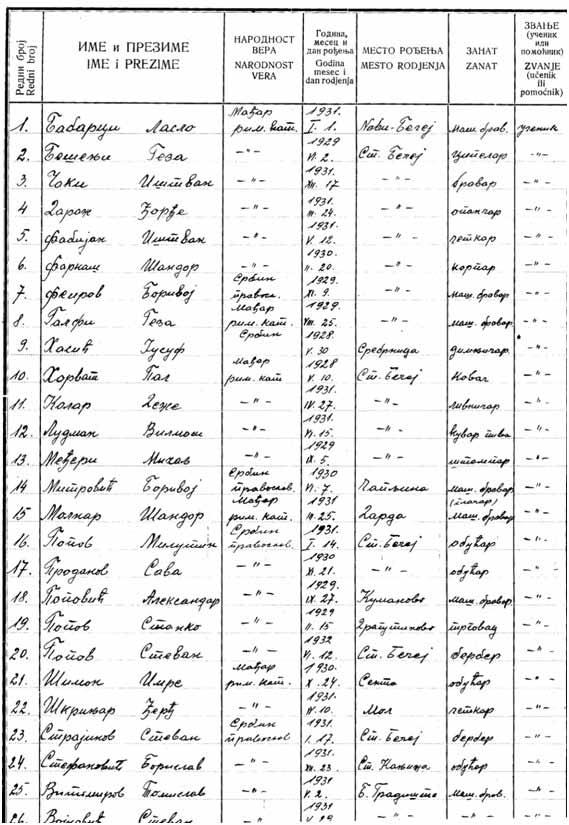 Редни број Redni broj | ИМЕ и ПРЕЗИМЕ IME i PREZIME | НАРОДНОСТ ВЕРА NARODNOST VERA | Година, месец и дан рођења Godina mesec i dan rodjenja | МЕСТО РОЂЕЊА MESTO RODJENJA | ЗАНАТ ZANAT | ЗВАЊЕ (ученик или помоћник) ZVANJE (učenik ili pomoćnik)
1. Бабарци Ласло Мађар рим. кат. 1931. I. 1. Нови-Бечеј маш. брав. ученик
2. Бешењи Геза -"- 1929 VI. 2. Ст. Бечej ципелар -"-
3. Чоки Иштван -"- 1931. XII. 17 -"- бравар -"-
4 Ђорђе -"- 1931. 24. -"- опанчар -"-
5. Фабијан Иштван -"- 1931. V. 12. -"- четкар -"-
6. Фаркаш Шандор -"- 1930. II. 20. -"- корпар -"-
7. Феиров Боривој Србин правосл. 1929. XI. 9. -"- маш. бравар -"-
8. Галфи Геза Мађар рим. кат. 1929. VIII. 25. -"- маш. бравар -"-
9. Хасић Јусуф Србин 1928. V. 30 Сребрница димничар -"-
10. Хорват Пал Мађар рим. кат 1928 V. 10. Ст. Бечеј Ковач -"-
11. Калар -"- 1931. IV. 27. -"- ливничар -"-
12. Лудман Вилмош -"- 1931. VI. 15. -"- кувар пива -"-
13. Међери Михаљ -"- 1929 IX. 5. -"- -"-
14 Митровић Боривој Србин православ. 1930 VI. 7. Чапљина маш. бравар -"-
15 Молнар Шандор Мађар рим. кат. 1931 25. маш. бравар -"-
16. Попов Милутин Србин православ. 1931. I. 14. Ст. Бечеј обућар -"-
17. Проданов Сава -"- 1930 XI. 21. -"- обућар -"-
18. Поповић Александар -"- 1929. IX. 27. Куманово маш. бравар -"-
19. Попов Станко -"- 1929 II. 15 трговац -"-
20. Попов Стеван -"- 1932 VI. 12. Ст. Бечеј бербер -"-
21. Шимон Имре Мађар рим. кат. 1930. X. 24. Сента обућар -"-
22. Шкрињар Ђерђ -"- 1931. IV. 10. Мол четкар -"-
23. Страјинов Стеван Србин православ 1931. I. 17. Ст. Бечеј бербер -"-
24. Стефановић Борислав -"- 1931. XII. 23 Ст. Кањижа обућар -"-
25. Витомиров Томислав -"- 1931 V. 2. Б. Градиште маш. брав. -"-
26. Војновић Стеван -"- 1931 V. 29 -"- -"- -"-